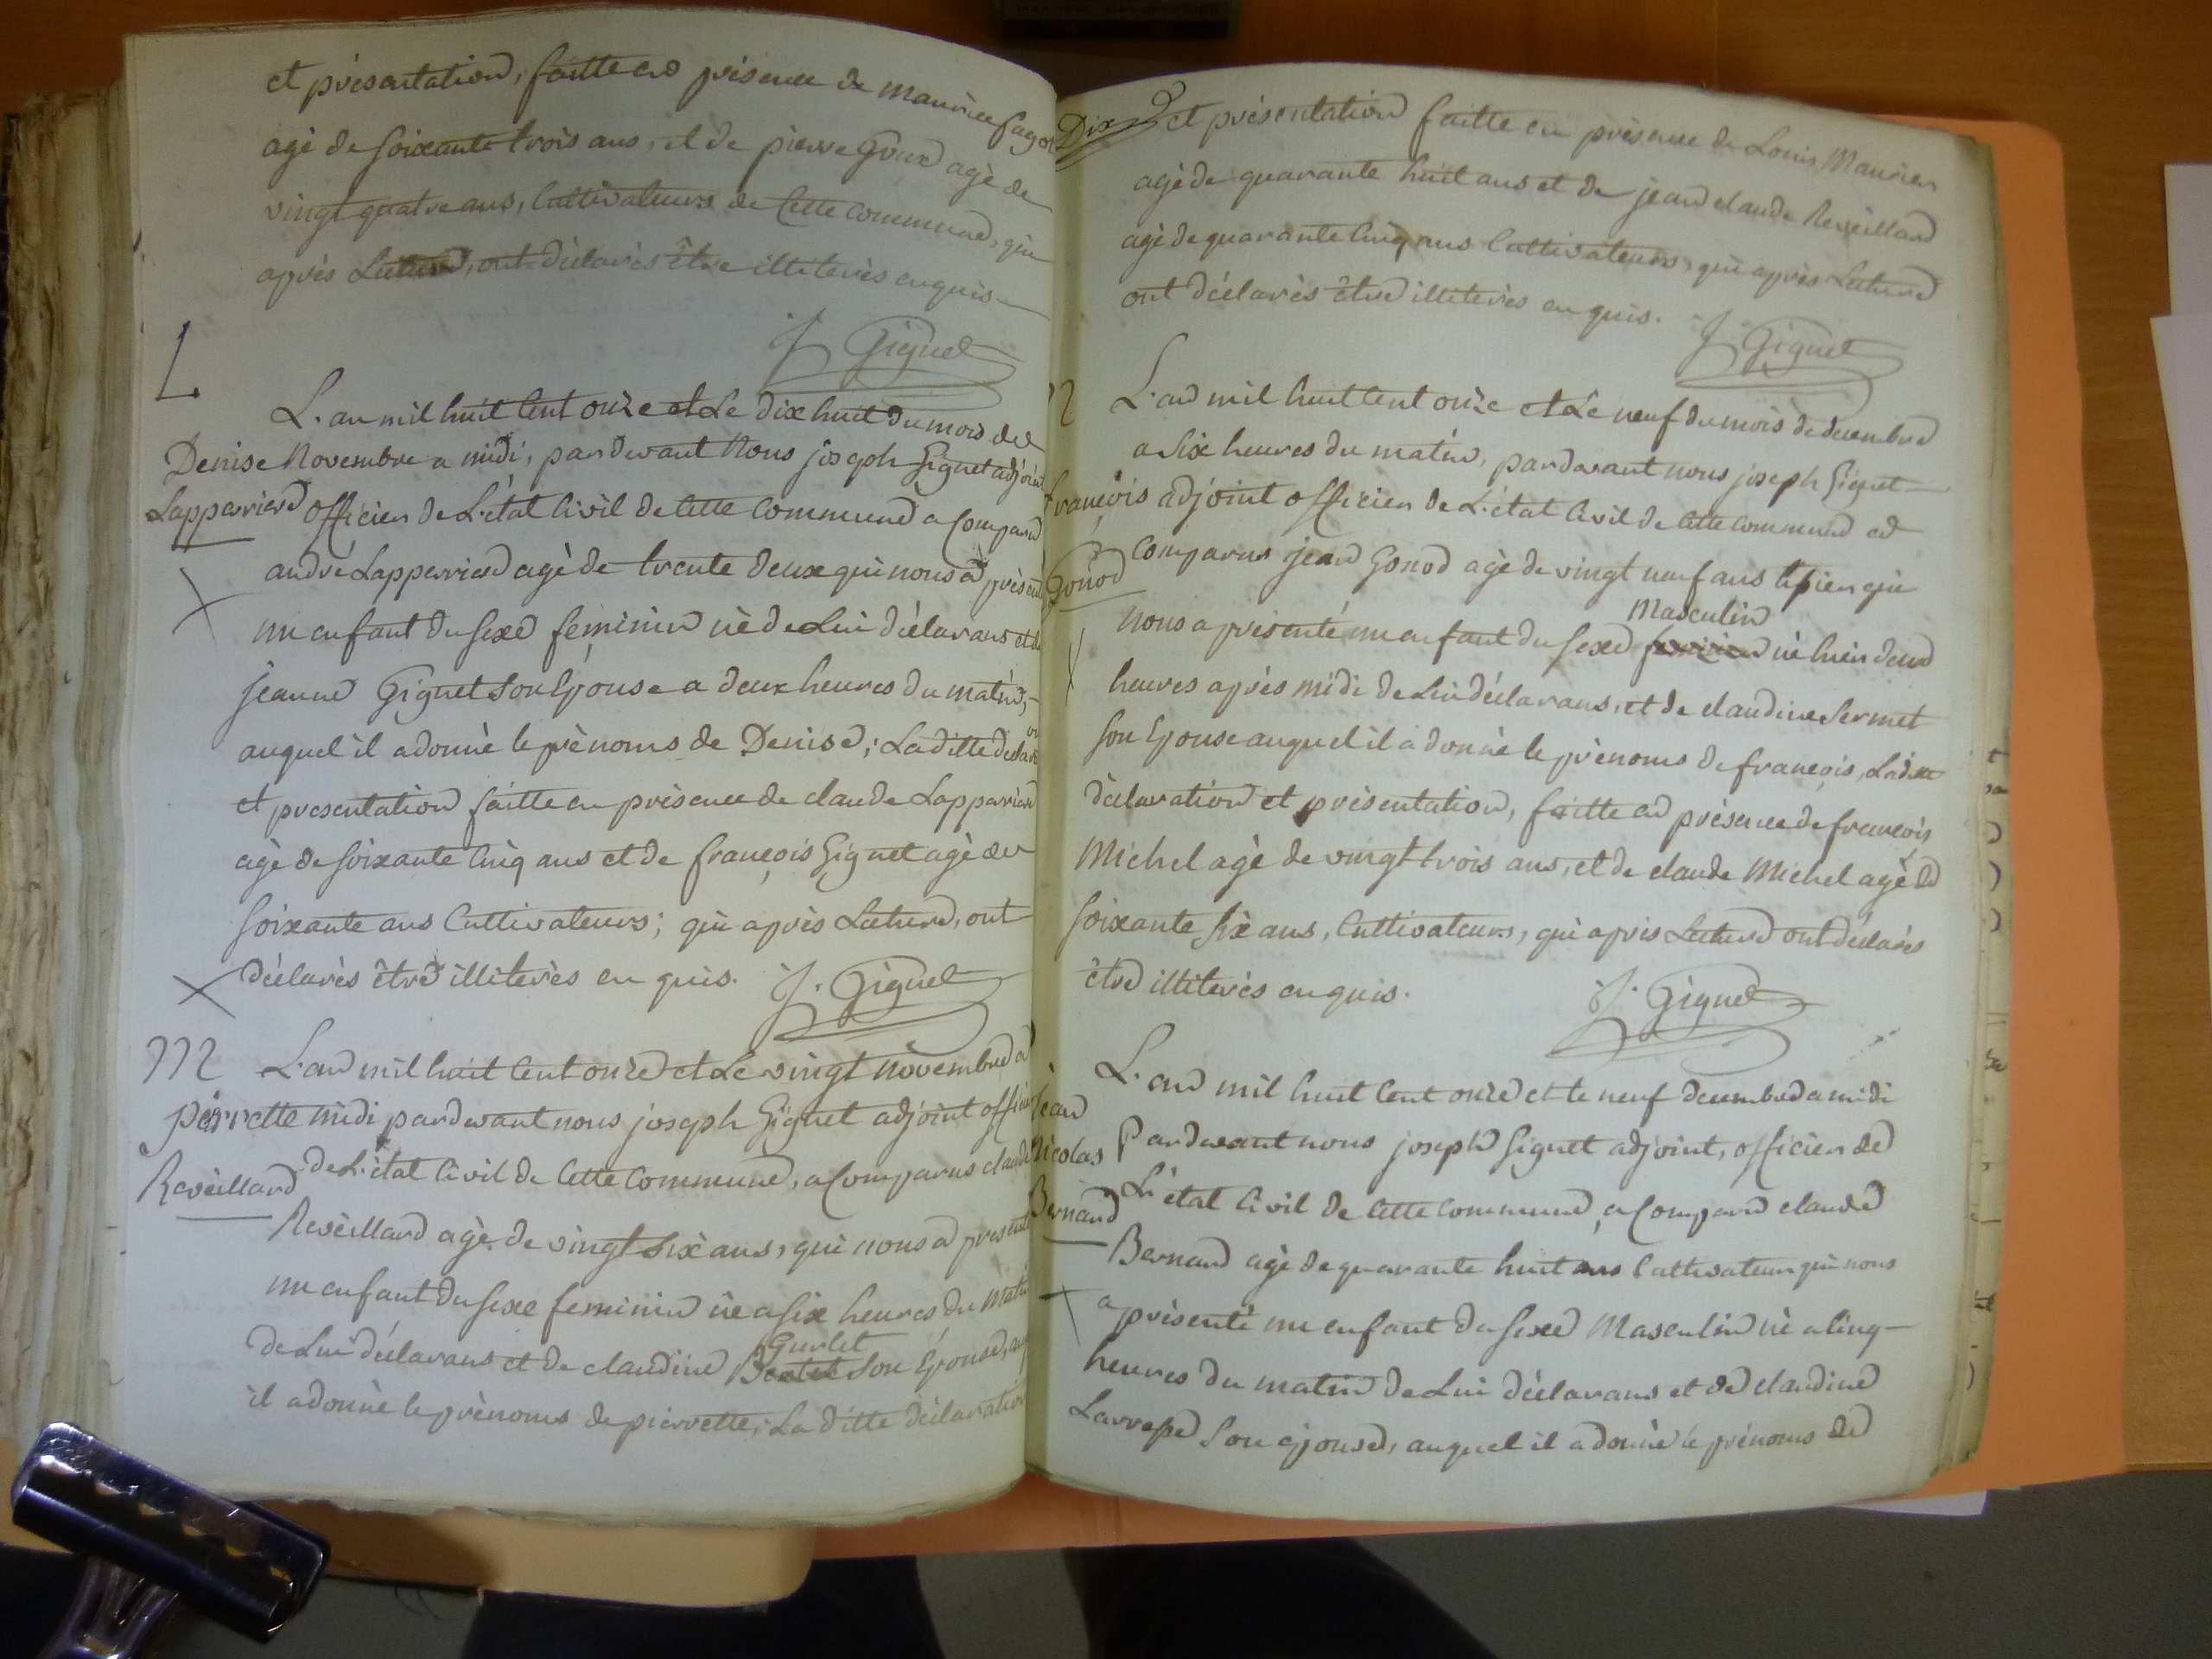 et présentation, faitte en présence de maurice fagot
agé de soixante trois ans, et de pierre Goux agè de
vingt quatre ans, Cultivateurs de Cette commune, qui
après Lecture, ont déclarés être illiterès enquis
J Giguet
L
L'an mil huit Cent onze et Le dix huit du mois de
Denise Novembre a midi, pardevant Nous joseph Giguet adjoint
Lapperriere officier de L'état Civil de Cette Commune a Comparu
andré Lapperriere agè de trente deux qui nous a présenté
un enfant du sexe feminin nè de Lui déclarans et de
jeanne Giguet son Epouse a deux heures du matin,
auquel il a donnè le prènoms de Denise; La ditte déclaration
et presentation faitte en présence de claude Lapperriere
agè de soixante Cinq ans et de françois Giguet agè de
soixante ans Cultivateurs; qui après Lecture, ont
déclarès être illiterès en quis. J. Giguet
M
L'an mil huit Cent onze et Le vingt novembre a
perrette midi pardevant nous joseph Giguet adjoint officier
Reveillard de L'état Civil de Cette Commune, a Comparus claude
Revèillard agè de vingt six ans, qui nous a presenté
un enfant du sexe feminin nè a six heures du matin
Gurlet
de Lui déclarans et de claudine son Epouse, auquel
il a donnè le prènoms de pierrette; La ditte déclaration
Dix et présentation faitte en présence de Louis Maurier
agè de quarante huit ans et de jean claude Revèillard
agè de quarante Cinq ans Cultivateurs, qui après Lecture
ont déclarès être illiterès en quis.
J Giguet
N
L'an mil huit Cent onze et Le neuf du mois de decembre
a six heures du matin, pardevant nous joseph Giguet
françois adjoint officier de L'état Civil de Cette Commune a
Gonod Comparus jean Gonod agè de vingt neuf ans qui
Masculin
nous a présenté un enfant du sexe feminin nè hier deux
heures après midi de Lui déclarans, et de claudine Sermet
son Epouse auquel il a donnè le prènoms de françois, Laditte
déclaration et présentation, faitte en présence de françois
Michel agè de vingt trois ans, et de claude Michel agè de
soixante six ans, Cultivateurs, qui après Lecture ont déclarès
être illiterès en quis. J. Giguet
L'an mil huit Cent onze et le neuf decembre a midi
jean
Nicolas Pardevant nous joseph Giguet adjoint, officier de
Bernard L'état Civil de Cette Commune, a Comparu claude
Bernard agè de quarante huit ans Cultivateur qui nous
a présenté un enfant du sexe Masculin nè a Cinq
heures du matin de Lui déclarans et de claudine
son epouse, auquel il a donnè le prènoms de